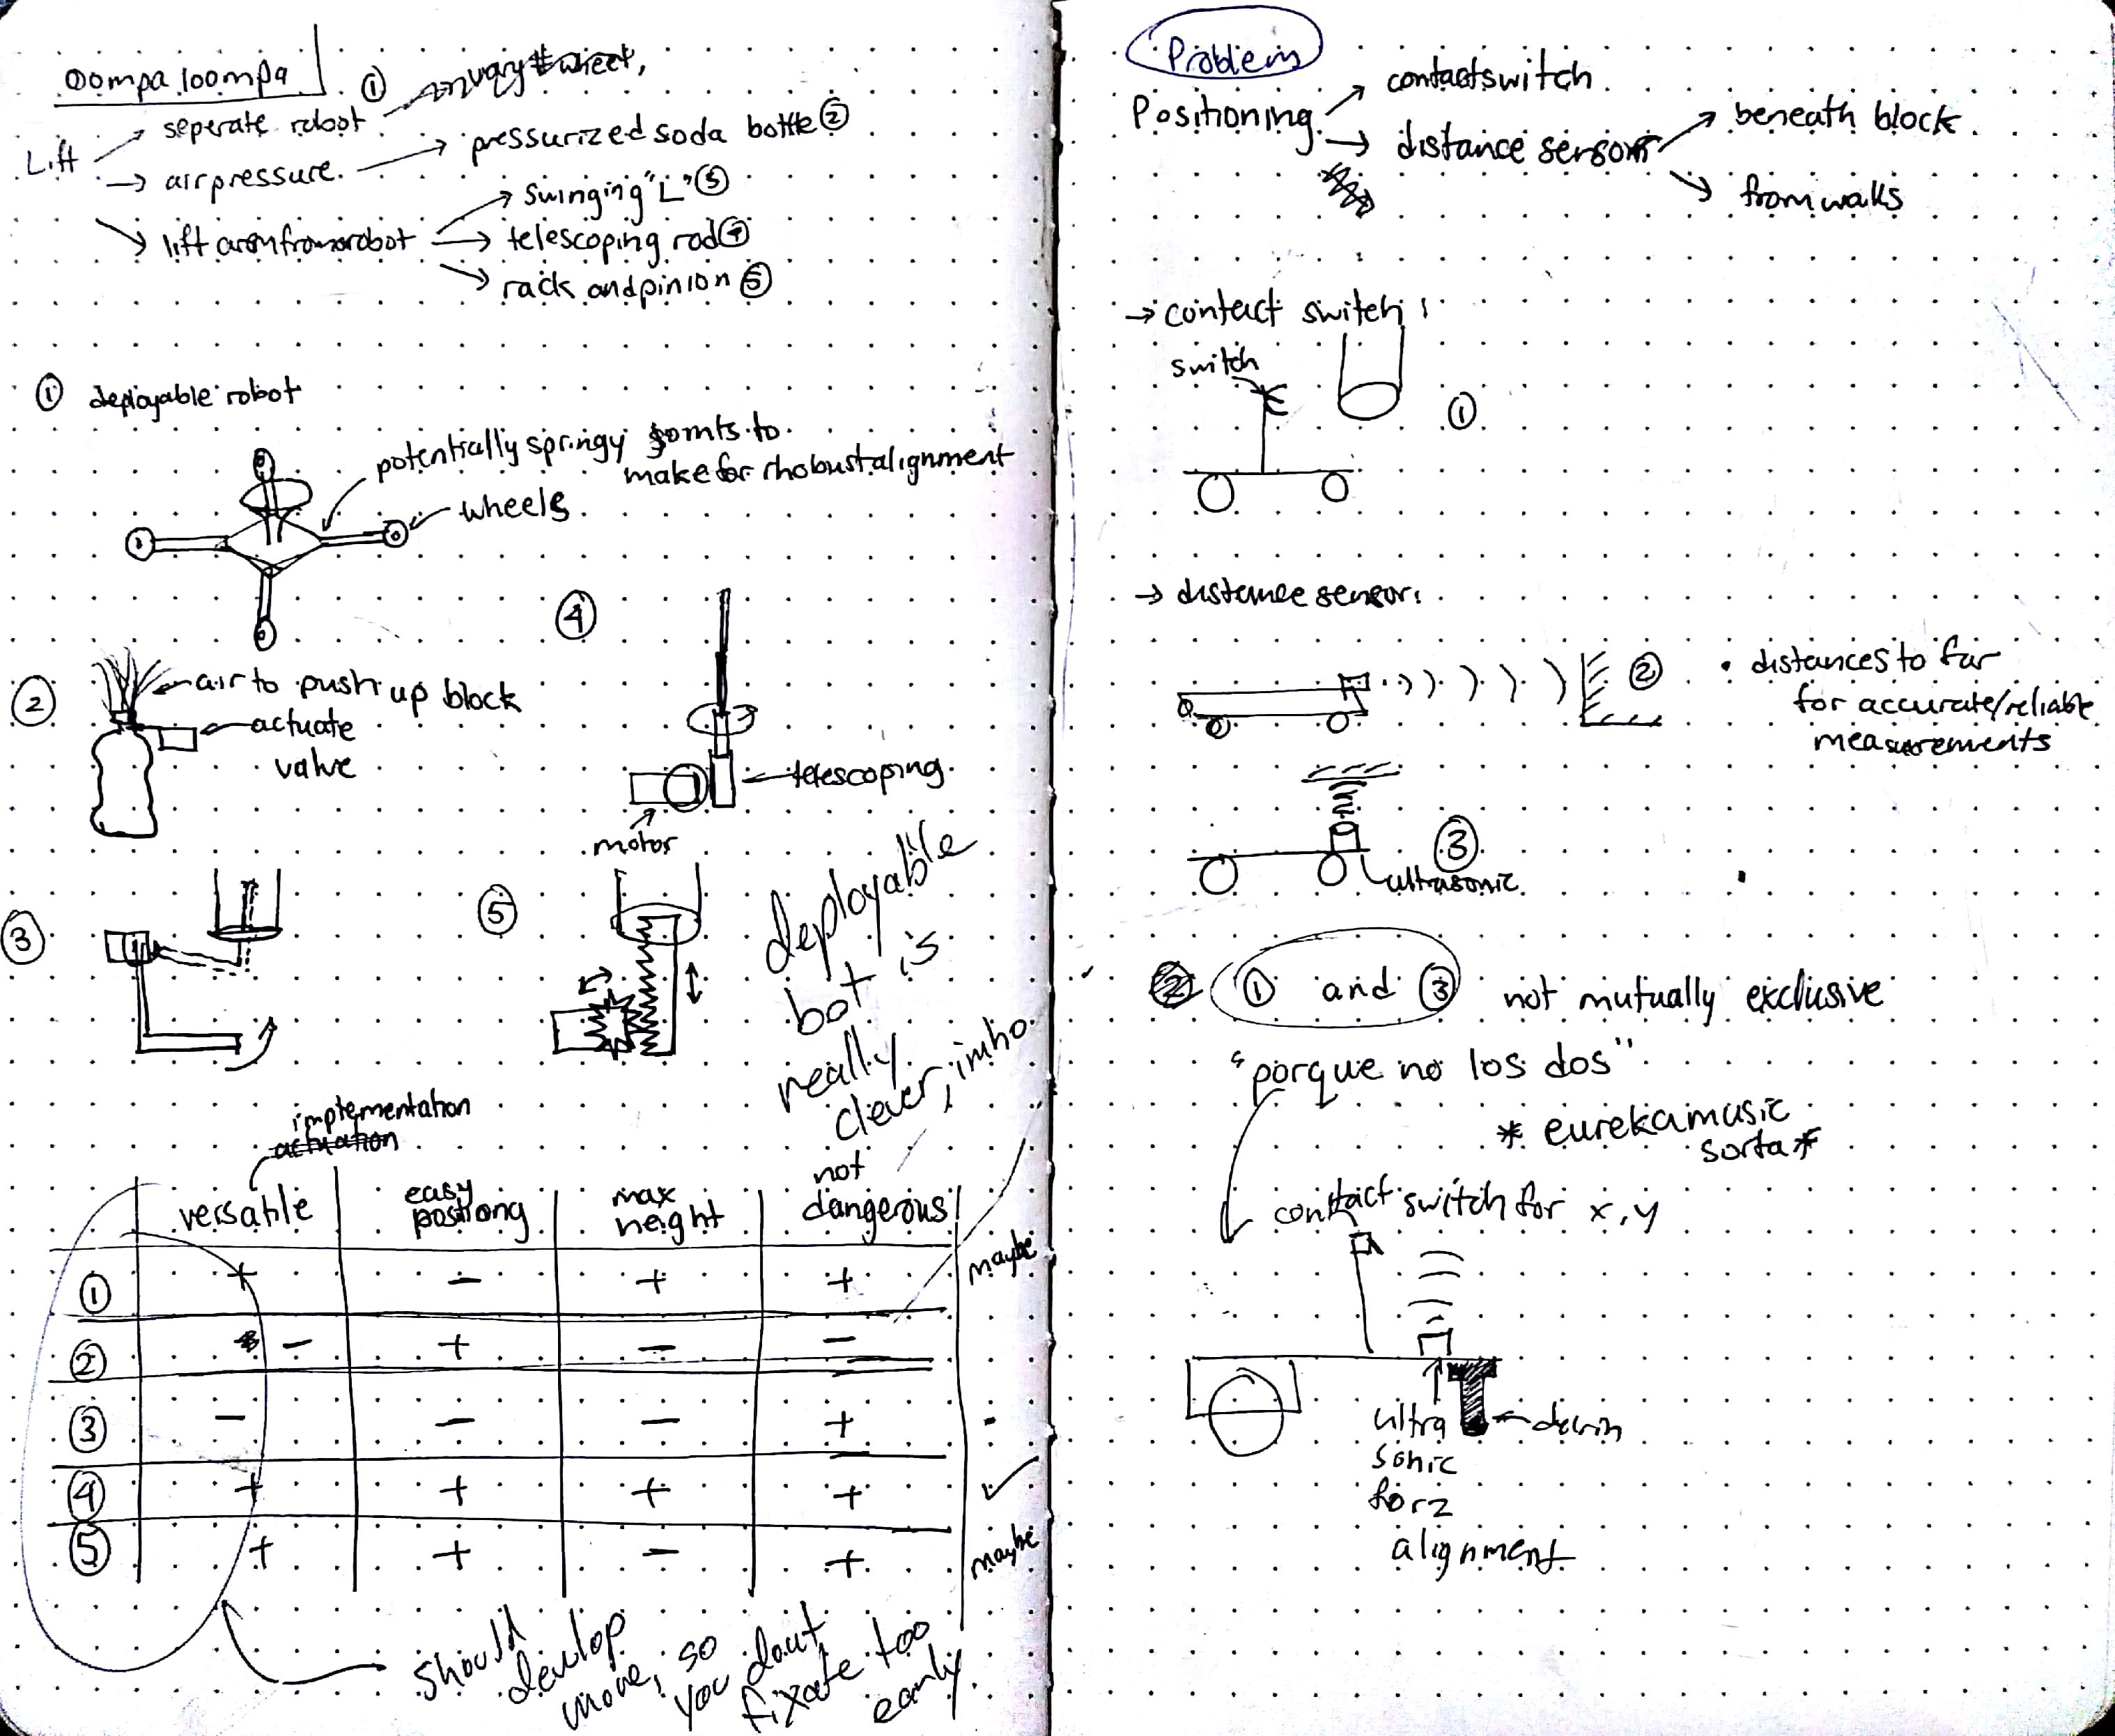 oompa loompa
Lift
seperate robot ①
vary # wheel,
air pressure
pressurized soda bottle ②
lift arm from robot
swinging "L" ③
telescoping rod ④
rack and pinion ⑤
① deployable robot
potentially springy joints to
make for rhobust alignment
wheels
②
air to push up block
actuate
valve
④
telescoping
motor
③
⑤
deployable
bot is
really
clever, imho
implementation
actuation
versatile easy positiong max height not dangerous
① + - + + maybe
② - + - -
③ - - - + -
④ + + + + ✓
⑤ + + - + maybe
should
develop
more, so
you dont
fixate too
early
Problem
Positioning
contact switch
distance sensor
beneath block
from walls
→ contact switch:
switch
①
→ distance sensor:
②
• distances to far
for accurate/reliable
measurements
③
ultrasonic
① and ③ not mutually exclusive
"porque no los dos"
* eureka music
sorta *
contact switch for x, y
ultra
sonic
for z
alignment